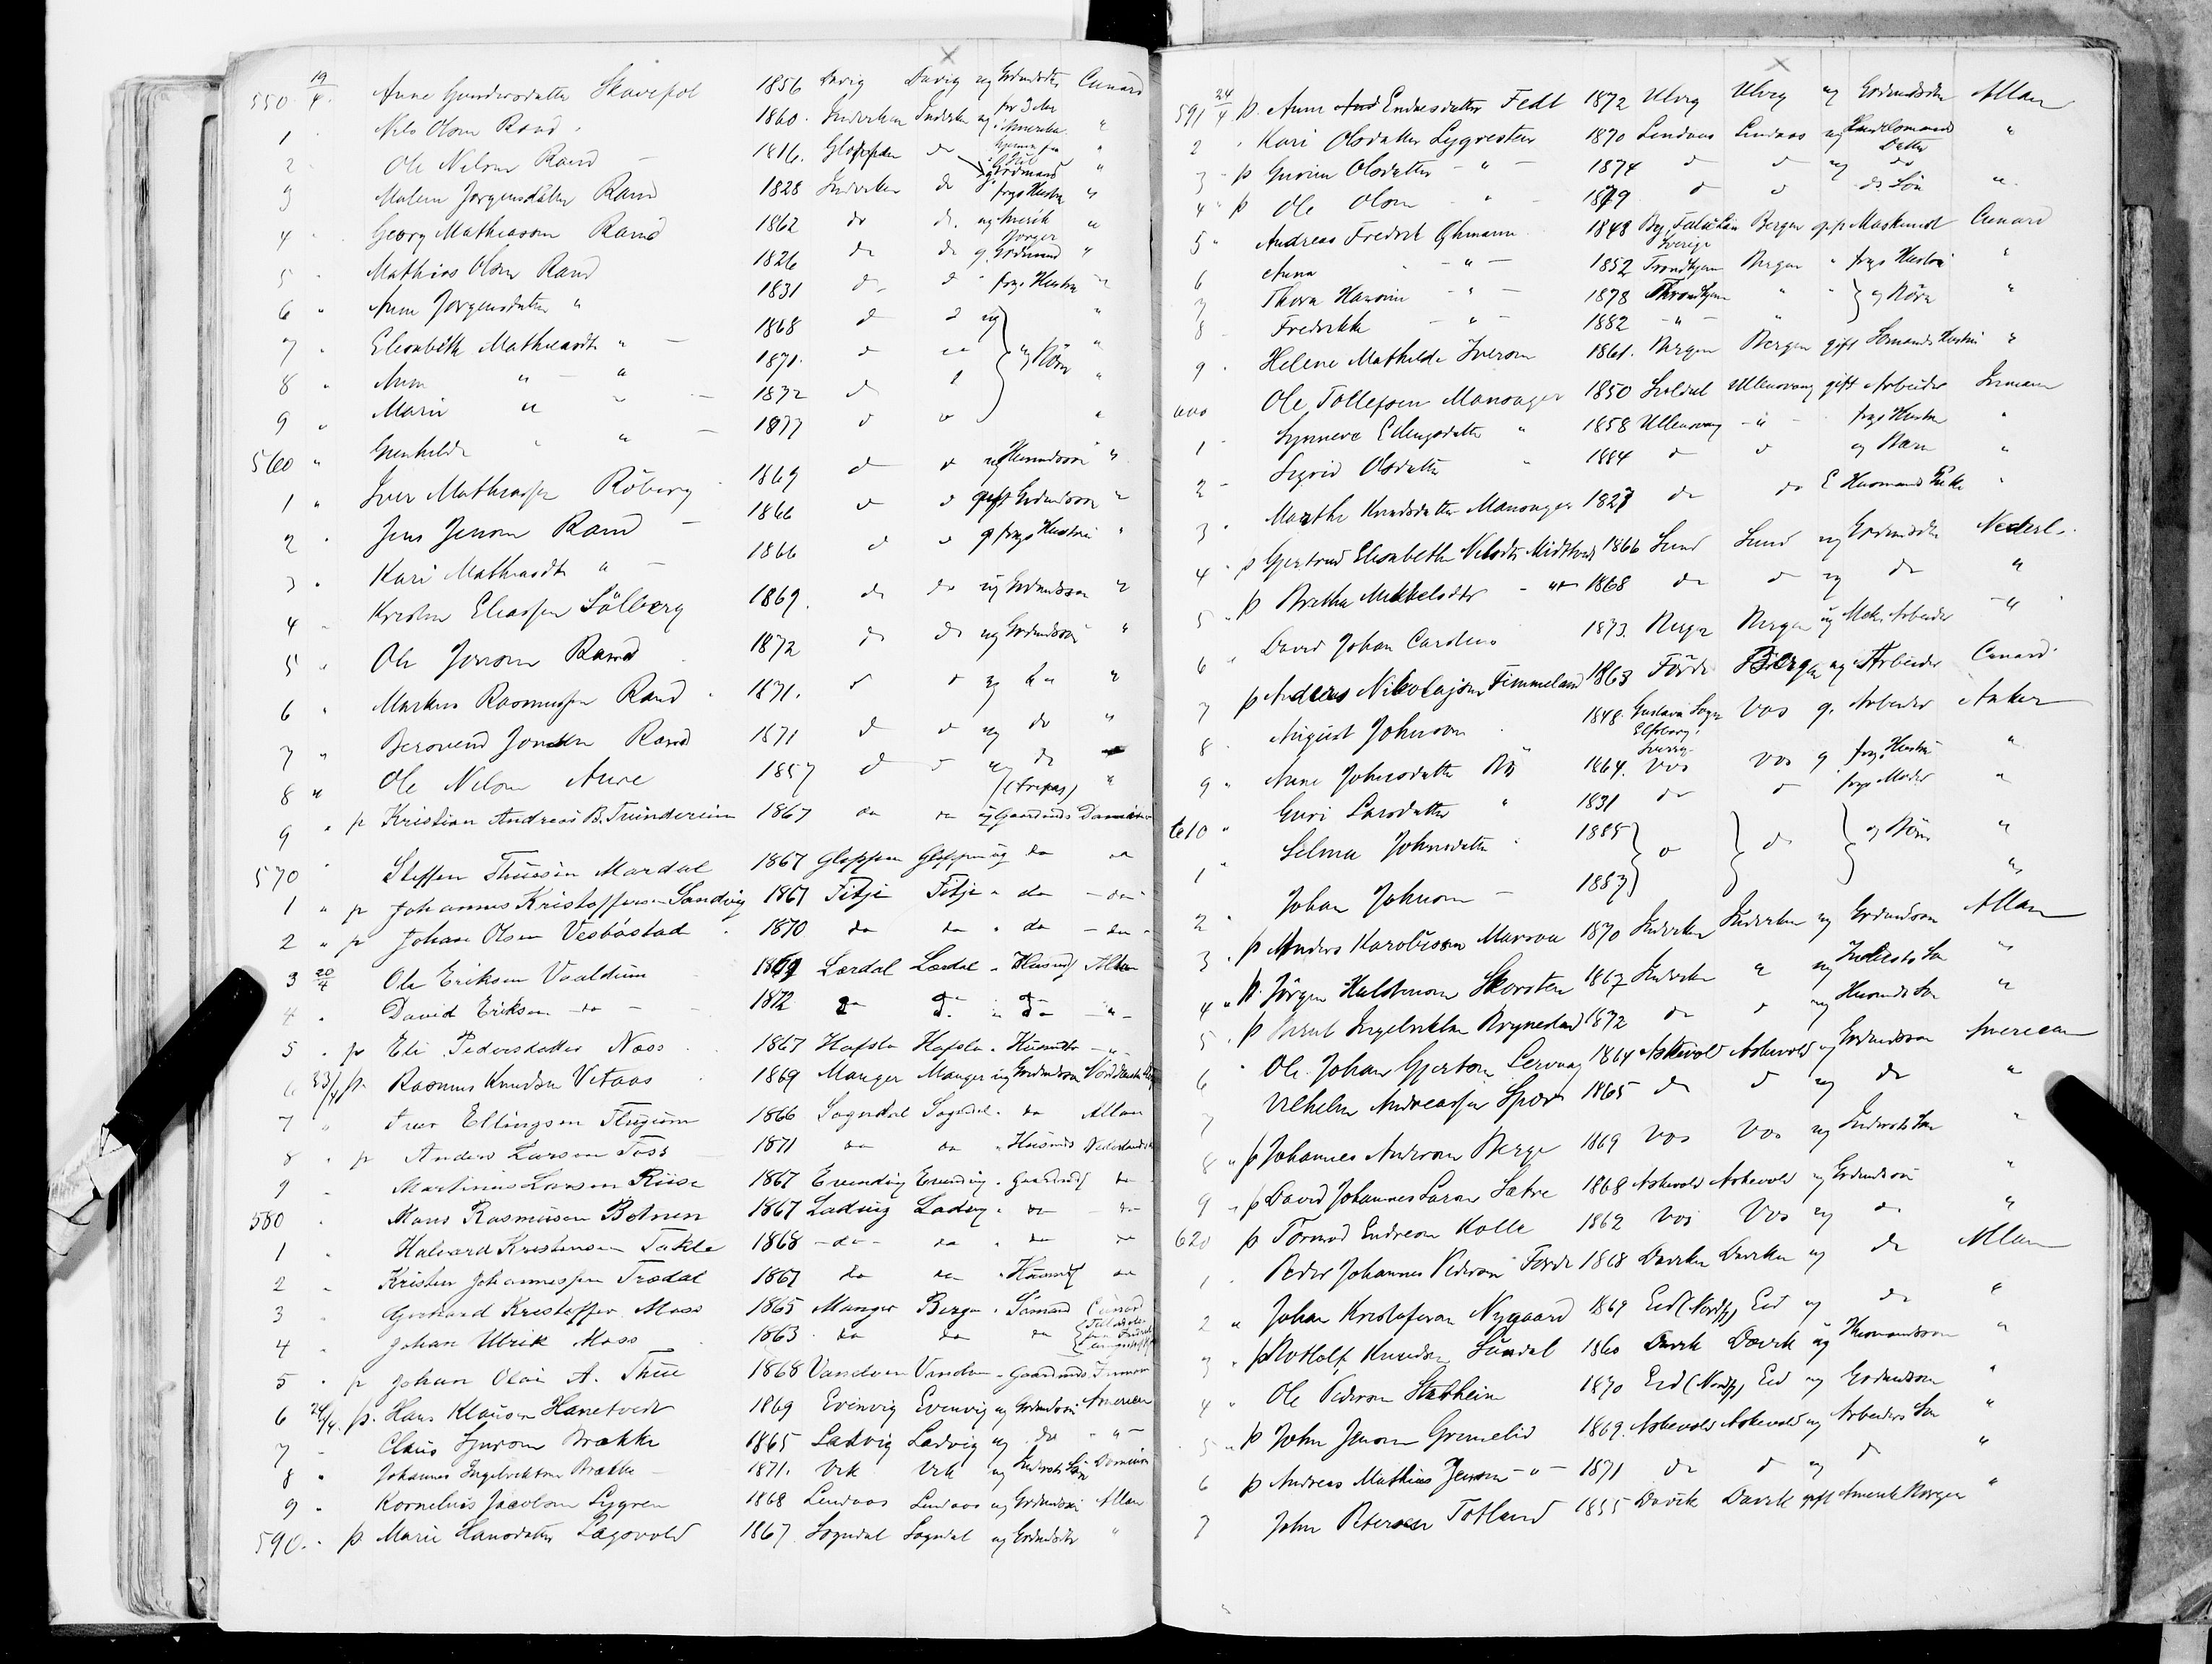 550. 19/4. Anne Gundersdatter Skavepol 1856 Davig Davig ug Grdmdstr Cunard
1 Nils Olsen Rand 1860. Inderiken Inderik ug for 3 Aar i Amerika "
2 Ole Nelsen Rand – 1816. Gloppen do "
3 Malene Jørgensdatter Rand 1828 Inderiken do frgs Hustru "
4 Georg Mathiasson Rand 1862 do do. ug Amerik Borger "
5 Mathias Olsen Rand 1826 do do g. Grdmand "
6 " Anne Jørgensdatter " 1831 do d " frgs Hustru "
7 " Elisabeth Mathiasdtr " – 1868 d d ug "
8 " Anne " – " 1871. d " Børn "
9 " Marie " " – 1872 d d "
560 " Gunhilde " " – 1877 d d "
1 " Iver Mathiassen Röberg 1869 d d ug Husmdssøn "
2 " Jens Jensen Rand – 1866 d d gift Grdmdssøn "
3 " Kari Mathiasdtr " – 1866 d d g frgs Hustru "
4 Kristen Eliassen Sölberg 1869. do do ug Grdmdssøn "
5 " Ole Jensen Rand 1872 do do ug Grdmdssøn "
6 " Markus Rasmussen Rand 1871. d d ug do "
7 " Berovend Jonsen Rand 1871 d d ug do "
8 " Ole Nelsen Aure 1857 d d ug do (Fripas) "
9 " p Kristian Andreas B. Trinderium 1867 do do ug Gaardmds Dominion
570 " Steffen Thuesen Mardal 1867 Gloppen Gloppen ug do do
1 " p Johannes Kristoffersen Sandvig 1867 Fitje Fitje " do – do –
2 " p Johan Olsen Vesböstad 1870 do do " do – do –
3 20/4 Ole Eriksen Voldum 1869 Lærdal Lærdal " Husmds Allan
4 " David Eriksen – do – 1872 do do " do – " –
5 " p Eli Pedersdatter Næss 1867 Hafslo Hafslo " Husmdtr – " –
6 23/4 p. Rasmus Knudsen Vetaas 1869 Manger Manger ug Grdmdssøn
7 " Iver Ellingsen Flugum 1866 Sogndal Sogndal " do Allan
8 " p Anders Larsen Foss 1871 do do " Husmds Nederlandsk
9 Martinus Larsen Riise 1867 Evendvig Evendvig " Gaardmds do
580 " Mons Rasmussen Botnen 1867 Ladvig Ladvig " do – do
1 " Halvard Kristensen Takle 1868 – do – do " do do
2 " Kristen Johannessen Trædal 1867 do do " Husmds do
3 " Gerhard Kristoffer Moss 1865 Manger Bergen " Sömand Cunard
4 " Johan Ulrik Moss 1863 do do do
5 " p Johan Olai A. Thue 1868 Vandven Vandven " Gaardmds Inman
6 24/4. p. Hans Klausen Hanetvedt 1869 Evenvig Evenvig ug Grdmdssøn American
7 – Claus Sjursen Brække 1865 Ladvig Ladvig ug do " –
8 " Johannes Ingebrektsen Brække 1871. Vik Vik ug Inderstr Søn Dominion
9 " Kornelius Jacobsen Lygren 1868 Lindaas Lindaas ug Grdmdssøn Allan
590. " p Marie Hansdatter Lægsvold 1867 Sogndal Sogndal ug Grdmdstr "
591 24/4 p. Anne Endresdatter Fedt 1872 Ulvig Ulvig ug Grdmdsdtr Allan
2 " Kari Olsdatter Lygresten 1870 Lindaas Lindaas ug Handelsmands Datter "
3 " p Gurine Olsdatter – " – 1874 d d ug do
4 " p Ole Olsen " 1879 d d do Søn "
5 " Andreas Fredrik Öhmann 1848 Falu Län Sverige Bergen gift Maskinist Cunard
6 Anna – " – 1852 Trondhjem Bergen " frgs Hustru "
7 Thora Hansine – " – 1878 Throndhjem " " ug Börn "
8 – Fredrikke – " – 1882 – " – "
9 " Helene Mathilde Iversen 1861. Bergen Bergen gift Sømands Hustru "
600 Ole Tollefsen Mansager 1850 Suldal Ullensvang gift Arbeider Inman
1 – Synneve Ellingsdatter " 1858 Ullensvang – " – frgs Hustru "
2 – Sigrid Olsdatter " 1884 d d ug Barn "
3 " Marthe Knudsdatter Mansager 1827 do do E Husmands Enke "
4 " p Gjertrud Elisabeth Nelsdtr Midtbø 1866 Lund Lund ug Grdmdsdtr Nederl.
5 " p Britha Mikkelsdtr – " – 1868 do d ug do "
6 " David Johan Cardens 1873. Bergen Bergen ug Mek. Arbeider – "
7 p Andreas Nikolajsen Timmeland 1863 Förde Bergen ug Arbeider Cunard
8 " August Johnson 1848. Gustava Sogn Elfsborg Sverrig Vos g. Arbeider Anker
9 " Anne Johnsdatter Bö 1864. Vos Vos g. frgs Hustru "
610 " Guri Larsdatter " 1831 do d frgs Moder "
1 Selma Johnsdatter " 1885 d d ug Börn "
2 " Johan Johnson – 1887 "
3 " p Anders Karolussen Marava 1870 Inderiken Inderiken ug Grdmdssøn Allan
4 " p. Jörgen Halstensen Skorsten 1867 Inderiken " ug Inderstr Søn "
5 " p Ingebrektsen Brynestad 1872 do d ug Husmds Søn "
6 " Ole Johan Gjertsen Lervaag 1864 Askevold Askevold ug Grdmdssøn American
7 Vilhelm Andreassen Spord 1865 do d ug do "
8 " p Johannes Andersen Berge 1869 Vos Vos ug Inderstr Søn "
9 " p David Johannes Larsen Sætre 1868 Askevold Askevold ug Grdmdssøn "
620 p Tormod Endresen Kolle 1862 Vos Vos ug do "
1 " Peder Johannes Pedersen Förde 1868 Daviken Daviken ug do Allan
2 " Johan Kristofersen Nygaard 1869 Eid (Nordfj) Eid ug do "
3 " p Rollef Knudsen Lundal 1860 Davik Davik ug Husmandssøn "
4 " Ole Pedersen Stadheim 1870 Eid (Nordfj) Eid ug Grdmdssøn "
5 " p John Jensen Grimelid 1869. Askevold Askevold ug Arbeiders Søn "
6 p Andreas Mathias Jensen – " – 1871 do d ug d "
7 John Petersen Totland 1855 Davik Davik gift Amerik Borger "